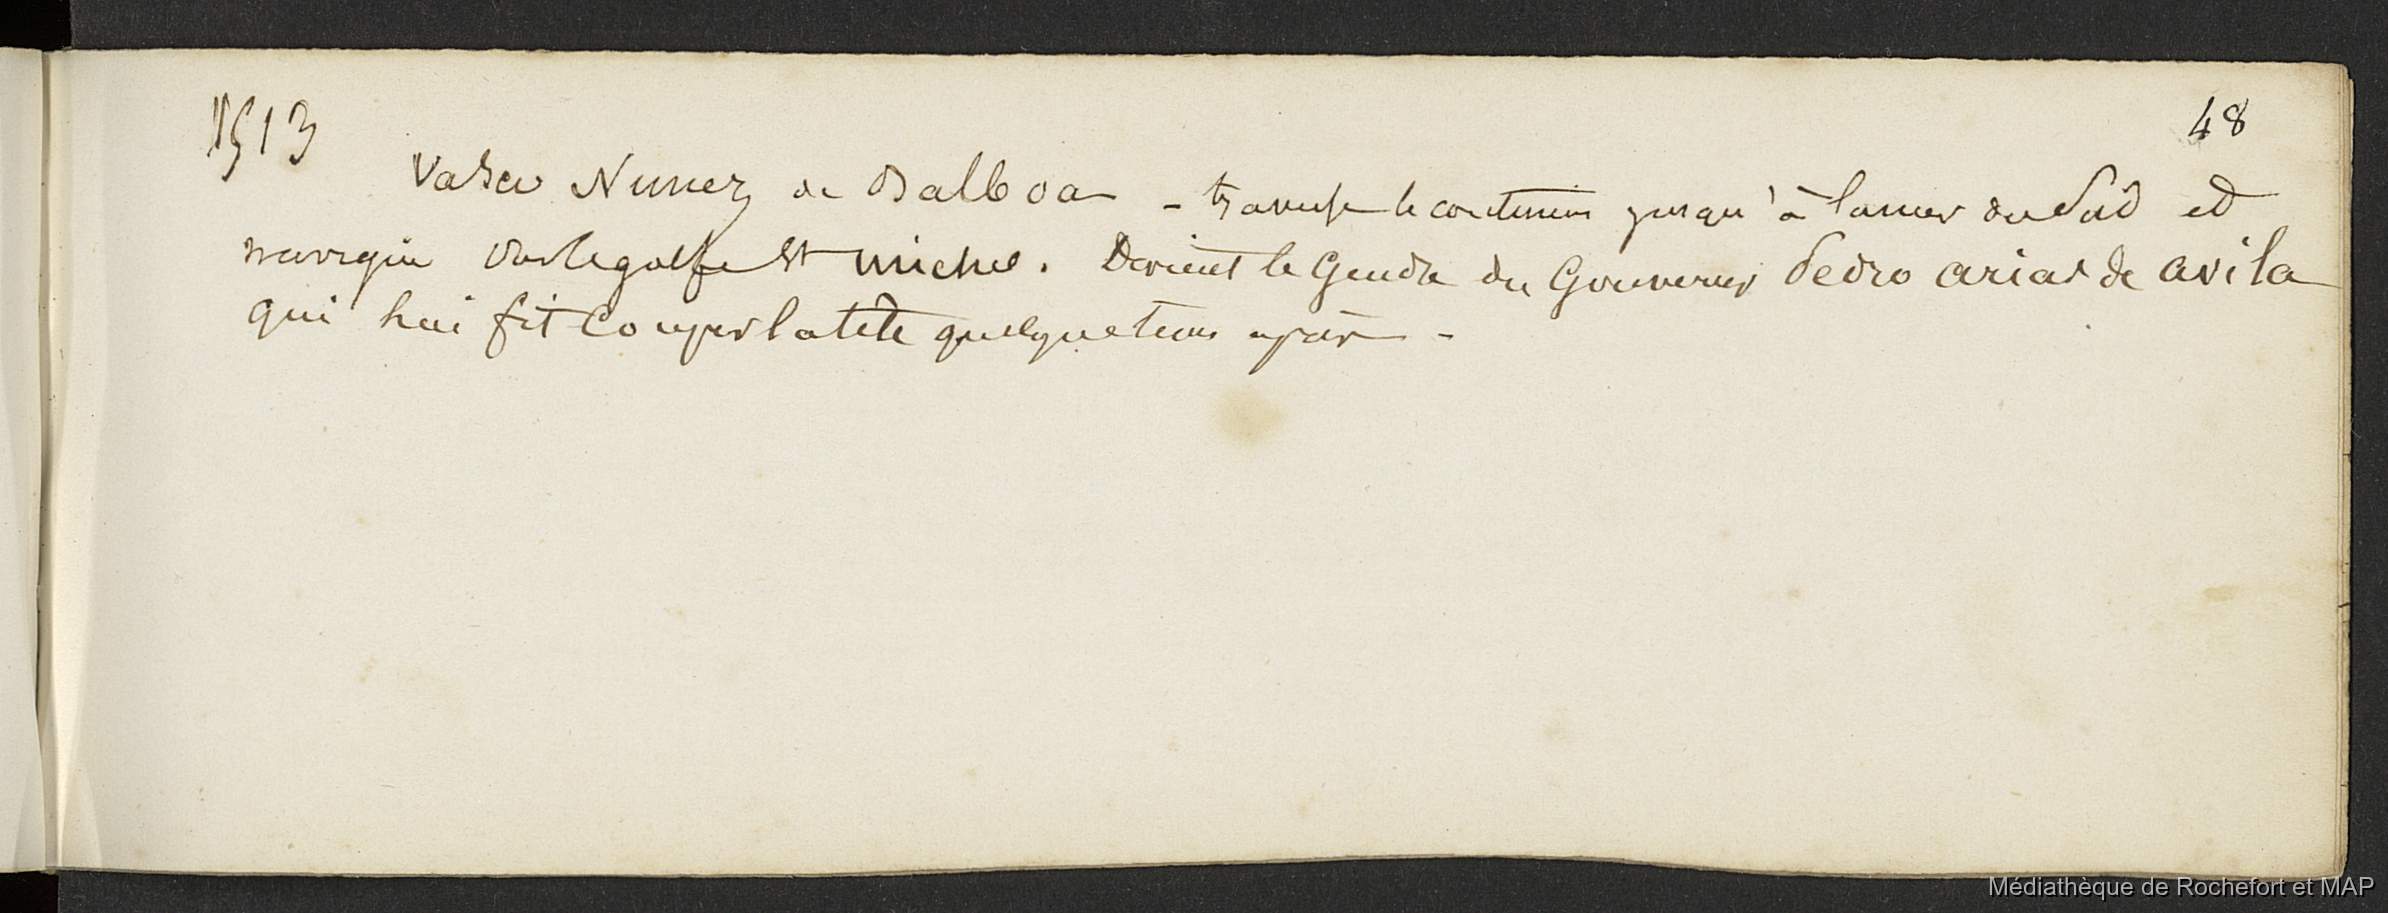 1513
48
Vasco Nunez de Balboa - traverse le continent jusqu'à la mer du Sud et
navigue sur le golfe St michel. Devient le Gendre du Gouverneur Pedro arias de avila
qui lui fit couper la tête quelque tems après -
Médiathèque de Rochefort et MAP